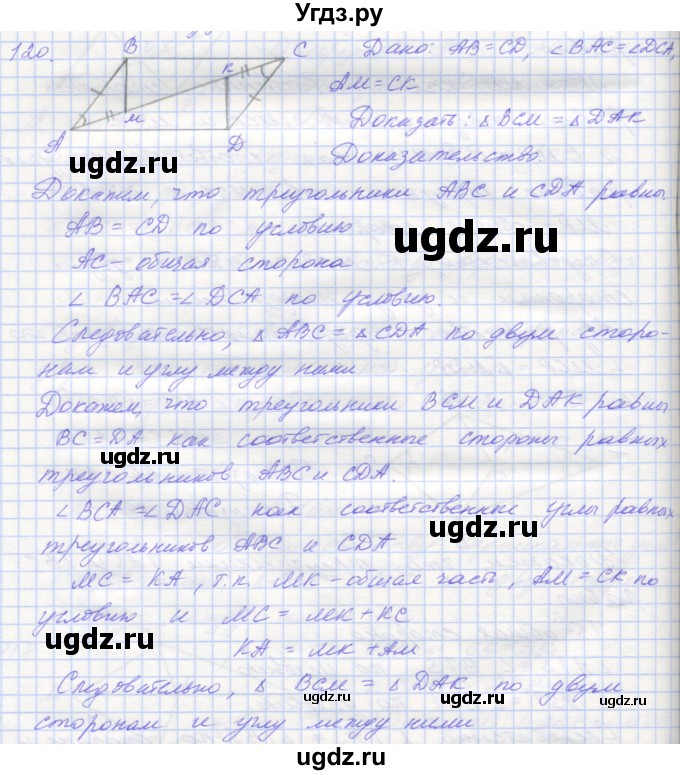 Угдз.ру
120.
B
C
K
M
A
D
Дано: AB=CD, ∠BAC=∠DCA,
AM=CK
Доказать: △BCM=△DAK
Доказательство
ugdz.ru
Докажем, что треугольники ABC и CDA равны
AB=CD по условию
ugdz.ru
AC-общая сторона
∠BAC=∠DCA по условию.
Следовательно, △ABC=△CDA по двум сторо-
нам и углу между ними
Докажем, что треугольники BCM и DAK равны
BC=DA как соответственные стороны равных
ugdz.ru
треугольников ABC и CDA.
∠BCA=∠DAC как соответственные углы равных
ugdz.ru
треугольников ABC и CDA
MC=KA, т.к. MK-общая часть, AM=CK по
условию и MC=MK+KC
ugdz.ru
KA=MK+AM
Следовательно, △BCM=△DAK по двум
сторонам и углу между ними
ugdz.ru
ugdz.ru